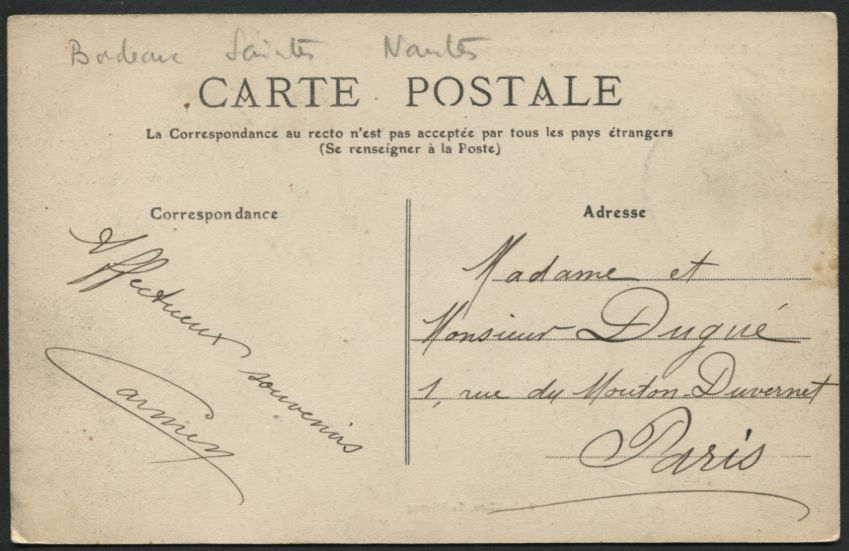 Bordeaux Saintes Nantes
CARTE POSTALE
La Correspondance au recto n'est pas acceptée par tous les pays étrangers
(Se renseigner à la Poste)
Correspondance
Affectueux souvenirs
Adresse
Madame et
Monsieur Dugué
1, rue du Mouton-Duvernet
Paris